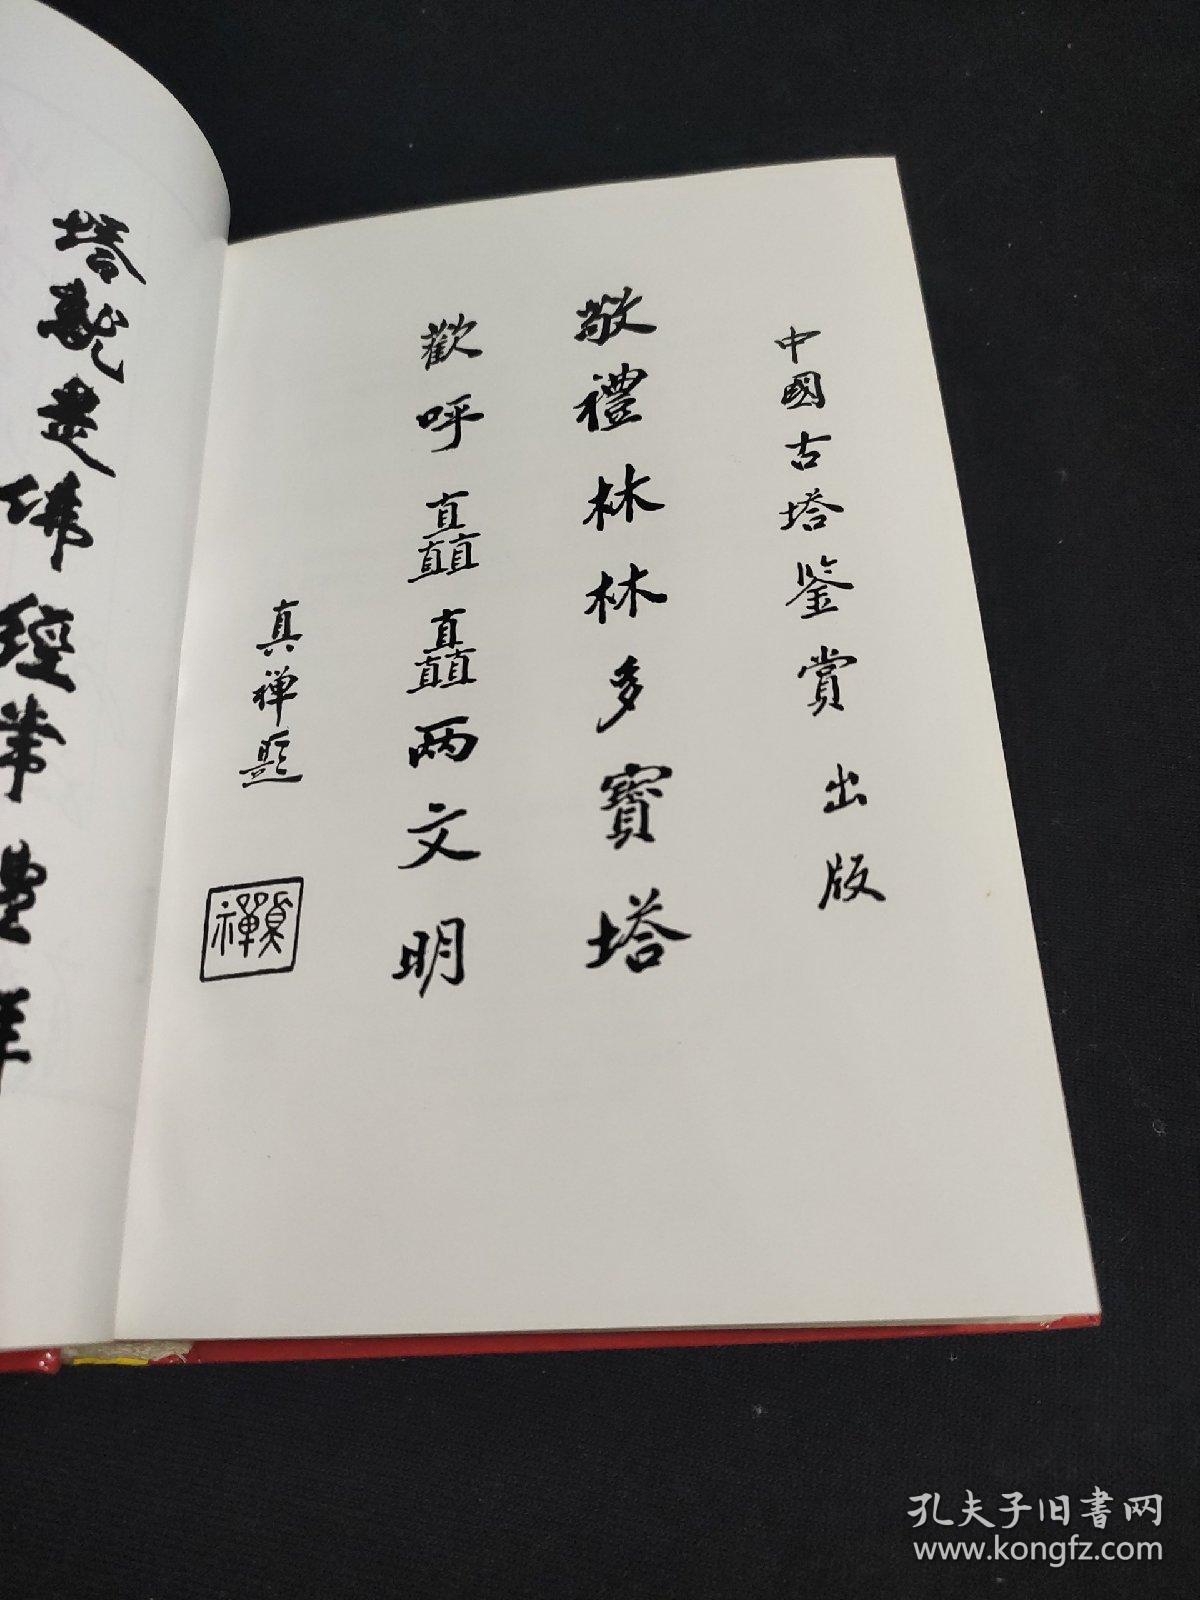 中國古塔鉴賞出版
敬禮林林多寶塔
歡呼矗矗两文明
真禅题
真禪
塔就是佛經常
孔夫子旧书网
www.kongfz.com